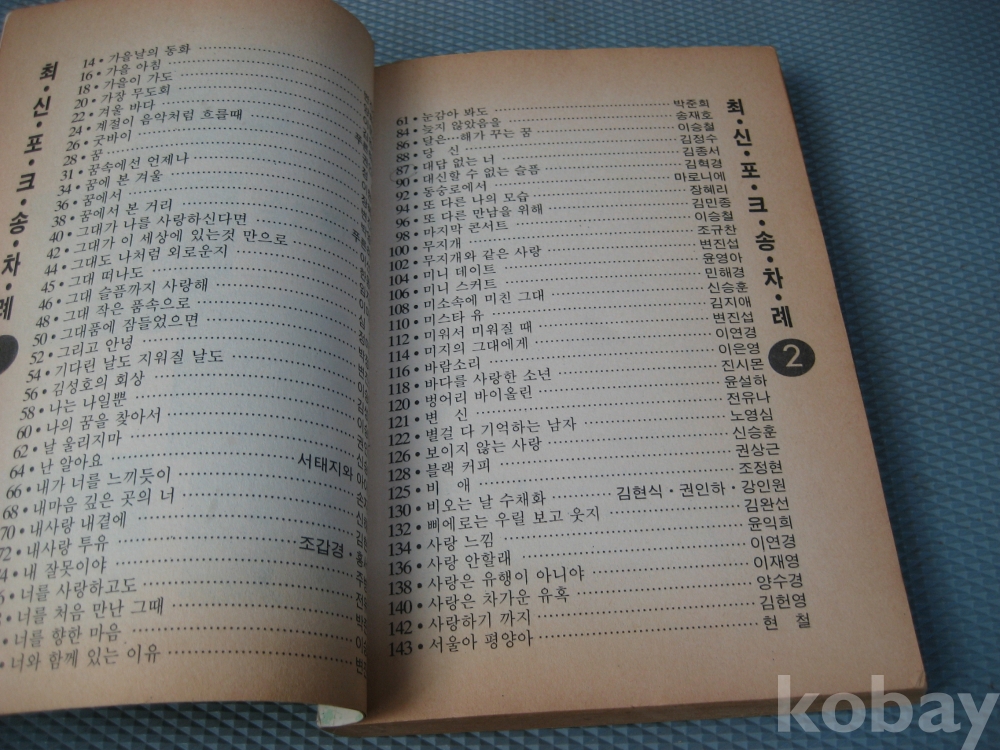 최·신·포·크·송·차·례
14 • 가을날의 동화
16 • 가을 아침
18 • 가을이 가도
20 • 가장 무도회
22 • 겨울 바다
24 • 계절이 음악처럼 흐를때
26 • 굿바이
28 • 꿈
31 • 꿈속에선 언제나
34 • 꿈에 본 겨울
36 • 꿈에서
38 • 꿈에서 본 거리
40 • 그대가 나를 사랑하신다면
42 • 그대가 이 세상에 있는것 만으로
44 • 그대도 나처럼 외로운지
45 • 그대 떠나도
46 • 그대 슬픔까지 사랑해
48 • 그대 작은 품속으로
50 • 그대품에 잠들었으면
52 • 그리고 안녕
54 • 기다린 날도 지워질 날도
56 • 김성호의 회상
58 • 나는 나일뿐
60 • 나의 꿈을 찾아서
62 • 날 울리지마
64 • 난 알아요 서태지와
66 • 내가 너를 느끼듯이
68 • 내마음 깊은 곳의 너
70 • 내사랑 내곁에
72 • 내사랑 투유 조갑경 ·
• 내 잘못이야
• 너를 사랑하고도
• 너를 처음 만난 그때
• 너를 향한 마음
• 너와 함께 있는 이유
61 • 눈감아 봐도 박준희
84 • 늦지 않았음을 송재호
86 • 달은…해가 꾸는 꿈 이승철
88 • 당 신 김정수
87 • 대답 없는 너 김종서
90 • 대신할 수 없는 슬픔 김혁경
92 • 동숭로에서 마로니에
94 • 또 다른 나의 모습 장혜리
96 • 또 다른 만남을 위해 김민종
98 • 마지막 콘서트 이승철
100 • 무지개 조규찬
102 • 무지개와 같은 사랑 변진섭
104 • 미니 데이트 윤영아
106 • 미니 스커트 민해경
108 • 미소속에 미친 그대 신승훈
110 • 미스타 유 김지애
112 • 미워서 미워질 때 변진섭
114 • 미지의 그대에게 이연경
116 • 바람소리 이은영
118 • 바다를 사랑한 소년 진시몬
120 • 벙어리 바이올린 윤설하
121 • 변 신 전유나
122 • 별걸 다 기억하는 남자 노영심
126 • 보이지 않는 사랑 신승훈
128 • 블랙 커피 권상근
125 • 비 애 조정현
130 • 비오는 날 수채화 김현식 · 권인하 · 강인원
132 • 삐에로는 우릴 보고 웃지 김완선
134 • 사랑 느낌 윤익희
136 • 사랑 안할래 이연경
138 • 사랑은 유행이 아니야 이재영
140 • 사랑은 차가운 유혹 양수경
142 • 사랑하기 까지 김헌영
143 • 서울아 평양아 현 철
최·신·포·크·송·차·례
2
kobay